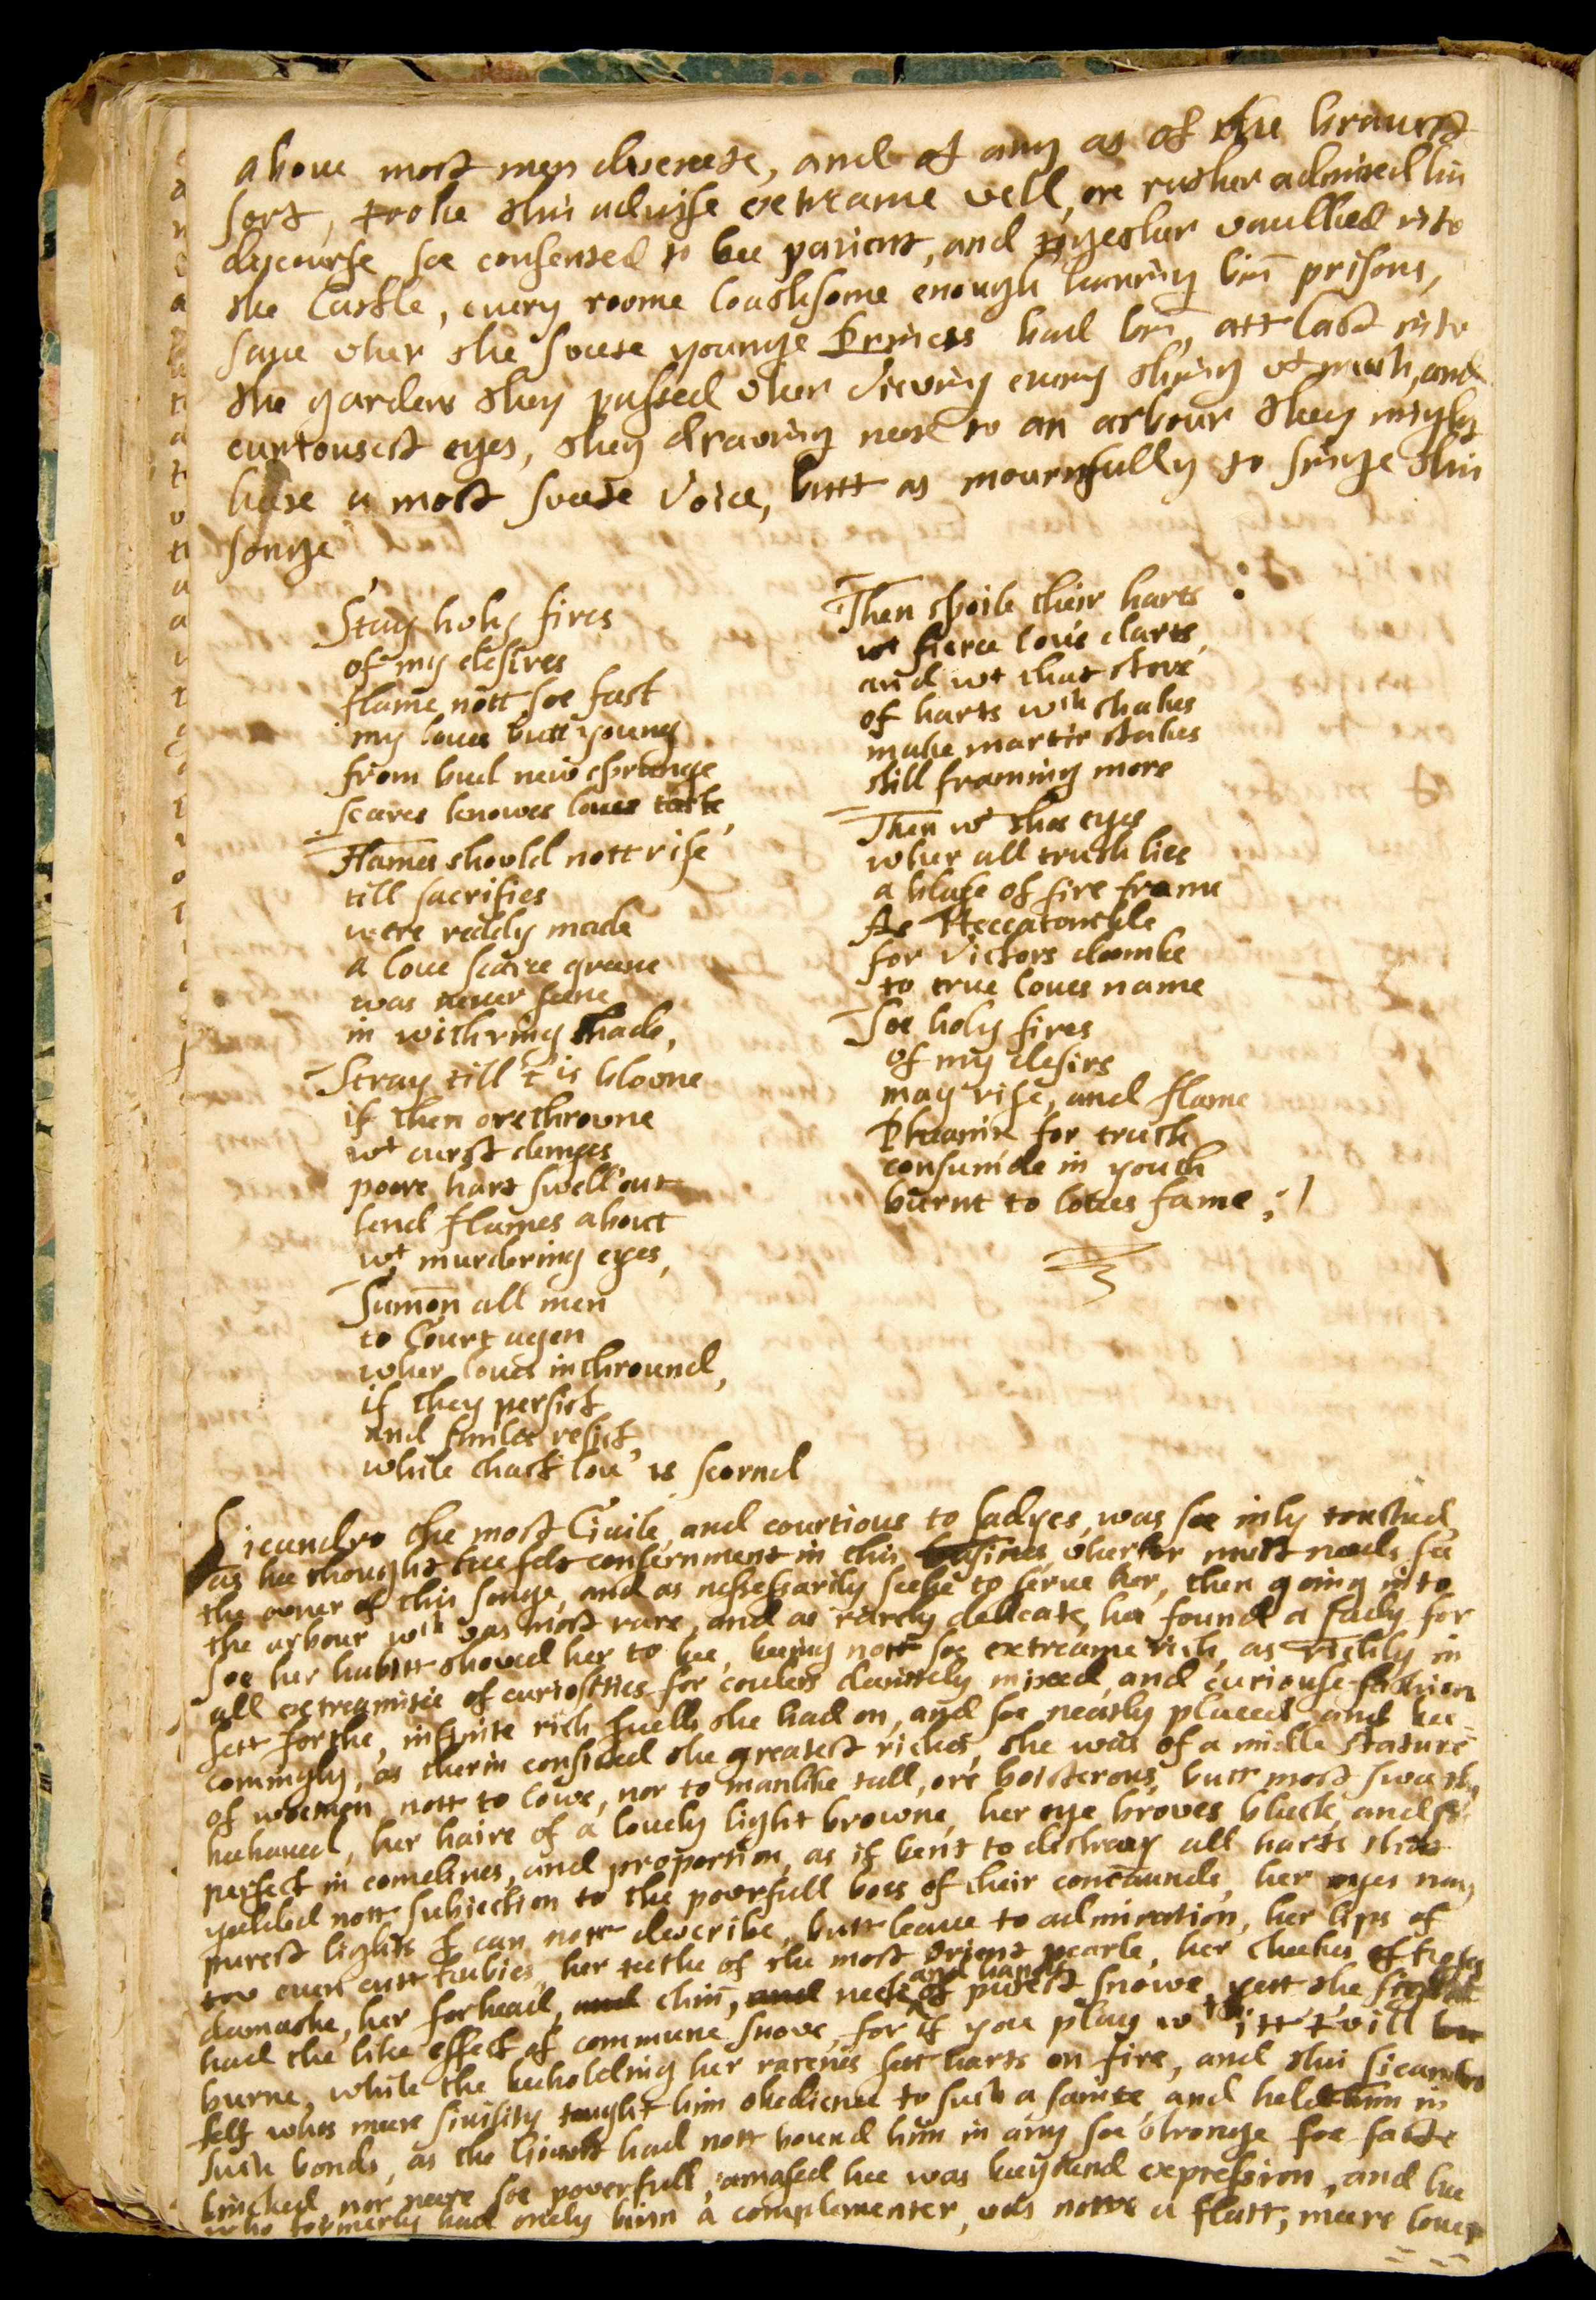 aboue most men discreete, and of any as of the brauest
sort, tooke this aduise extreame well, ore rather admired his
discourse soe consented to bee patient, and together vaulked into
the Castle, euery roome loathsome enough hauing bin prisons,
saue wher the sweete younge Princess had bin, att last into
the gardens they passed wher viewing euery thing wt much, and
curiousest eyes, they drawing neere to an arbour they might
heare a most sweete voice, butt as mournfully to singe this
songe
Stay holy fires
of my desires
flame nott soe fast
my loues butt young
from bud new sprunge
scarce knowes loues taste,
Flames should nott rise
till sacrifies
were reddy made
a loue scarce greene
was neuer seene
in withring shade,
Stray till 't is blowne
if then orethrowne
wt curst denyes
poore hart swell out
send flames about
wt murdering eyes,
Sumon all men
to Court agen
wher loues inthround,
if they persist
and smiles resist,
while chast lou' is scornd
Then spoile their harts :
wt fierce loues darts,
and wt that store
of harts wch shakes
make martir stakes
still framing more
Then wt thos eyes
wher all truth lies
a blase of fire frame
As Heccatombe
for victors doombe
to true loues name
Soe holy fires
of my desirs
may rise, and flame
Pheanix for truth
consumde in youth
burnt to loues fame ;
Licandro the most Ciuile, and courtious to ladyes, was soe inly touched,
as hee thought hee felt consernment in this busines wherfor must needs see
the owner of this songe, and as nessessarily seeke to serue her, then going into
the arbour wch was most rare, and as rarely delicate, hee found a lady for
soe her habitt showed her to bee, beeing nott soe extreame rich, as richly in
all extreamitie of curiosities for coulers daintely mixed, and curiouse fashion
sett forthe, infinite rich juells she had on, and soe neatly placed and bee=
comingly, as therin consisted the greatest riches, she was of a midle stature
of woemen nott to lowe, nor to manlike tall, ore boisterous, butt most sweetly
behaued, her haire of a louely light browne, her eye browes black, and soe
perfect in comelines, and proportion, as if bent to destroy all harts that
yeelded nott subiection to the powrfull bows of their comaunds, her eyes
purest lights I can nott describe, butt leaue to admiration, her lips of
tow euen cutt rubies, her teethe of the most orient pearle, her cheekes of
damaske, her forhead, and chin, and neck and hands of purest snowe, yett she
had the like effect of commune snowe, for if you play wt itt t'will
burne, while the beeholding her rarenes sett harts on fire, and this licandro
felt whos meere siuility tought him obedience to such a sainte, and held him in
such bonds, as the had nott bound him in any soe stronge soe faste
lincked nor neere soe powerfull, amased hee was beeyound expression, and hee
who formerly had onely binn a complementer, was nowe a flatt, meere louer